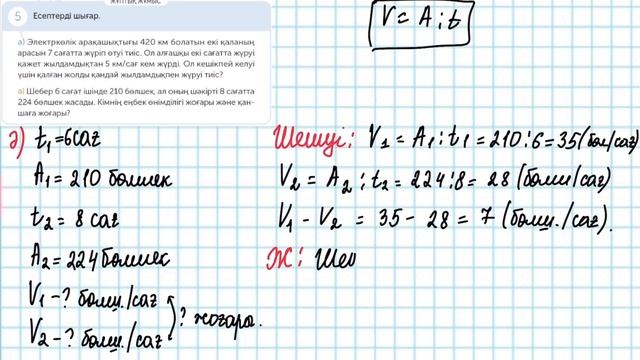 ЖҰПТЫҚ ЖҰМЫС
5 Есептерді шығар.
а) Электркөлік арақашықтығы 420 км болатын екі қаланың
арасын 7 сағатта жүріп өтуі тиіс. Ол алғашқы екі сағатта жүруі
қажет жылдамдықтан 5 км/сағ кем жүрді. Ол кешікпей келуі
үшін қалған жолды қандай жылдамдықпен жүруі тиіс?
ә) Шебер 6 сағат ішінде 210 бөлшек, ал оның шәкірті 8 сағатта
224 бөлшек жасады. Кімнің еңбек өнімділігі жоғары және қан-
шаға жоғары?
V = A : t
ә) t₁=6сағ
A₁ = 210 бөлшек
t₂ = 8 сағ
A₂ = 224 бөлшек
V₁ – ? бөлш./сағ
V₂ – ? бөлш./сағ
? жоғары.
Шешуі: V₁ = A₁ : t₁ = 210 : 6 = 35 (бөл/сағ)
V₂ = A₂ : t₂ = 224 : 8 = 28 (бөлш/сағ)
V₁ – V₂ = 35 – 28 = 7 (бөлш./сағ).
Ж: Шеб